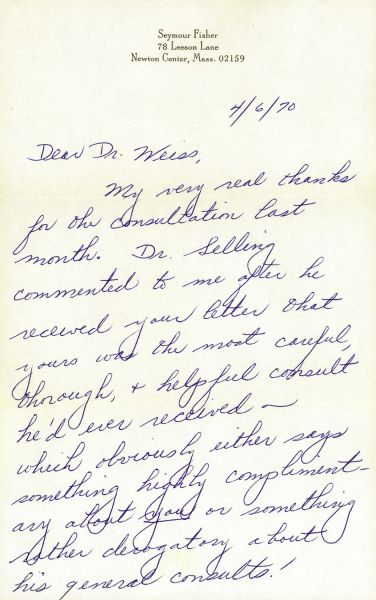 Seymour Fisher
78 Leeson Lane
Newton Center, Mass. 02159
4/6/70
Dear Dr. Weiss,
My very real thanks
for the consultation last
month. Dr. Selling
commented to me after he
received your letter that
yours was the most careful,
thorough, & helpful consult
he'd ever received —
which obviously either says
something highly compliment-
ary about you or something
rather derogatory about
his general consults!